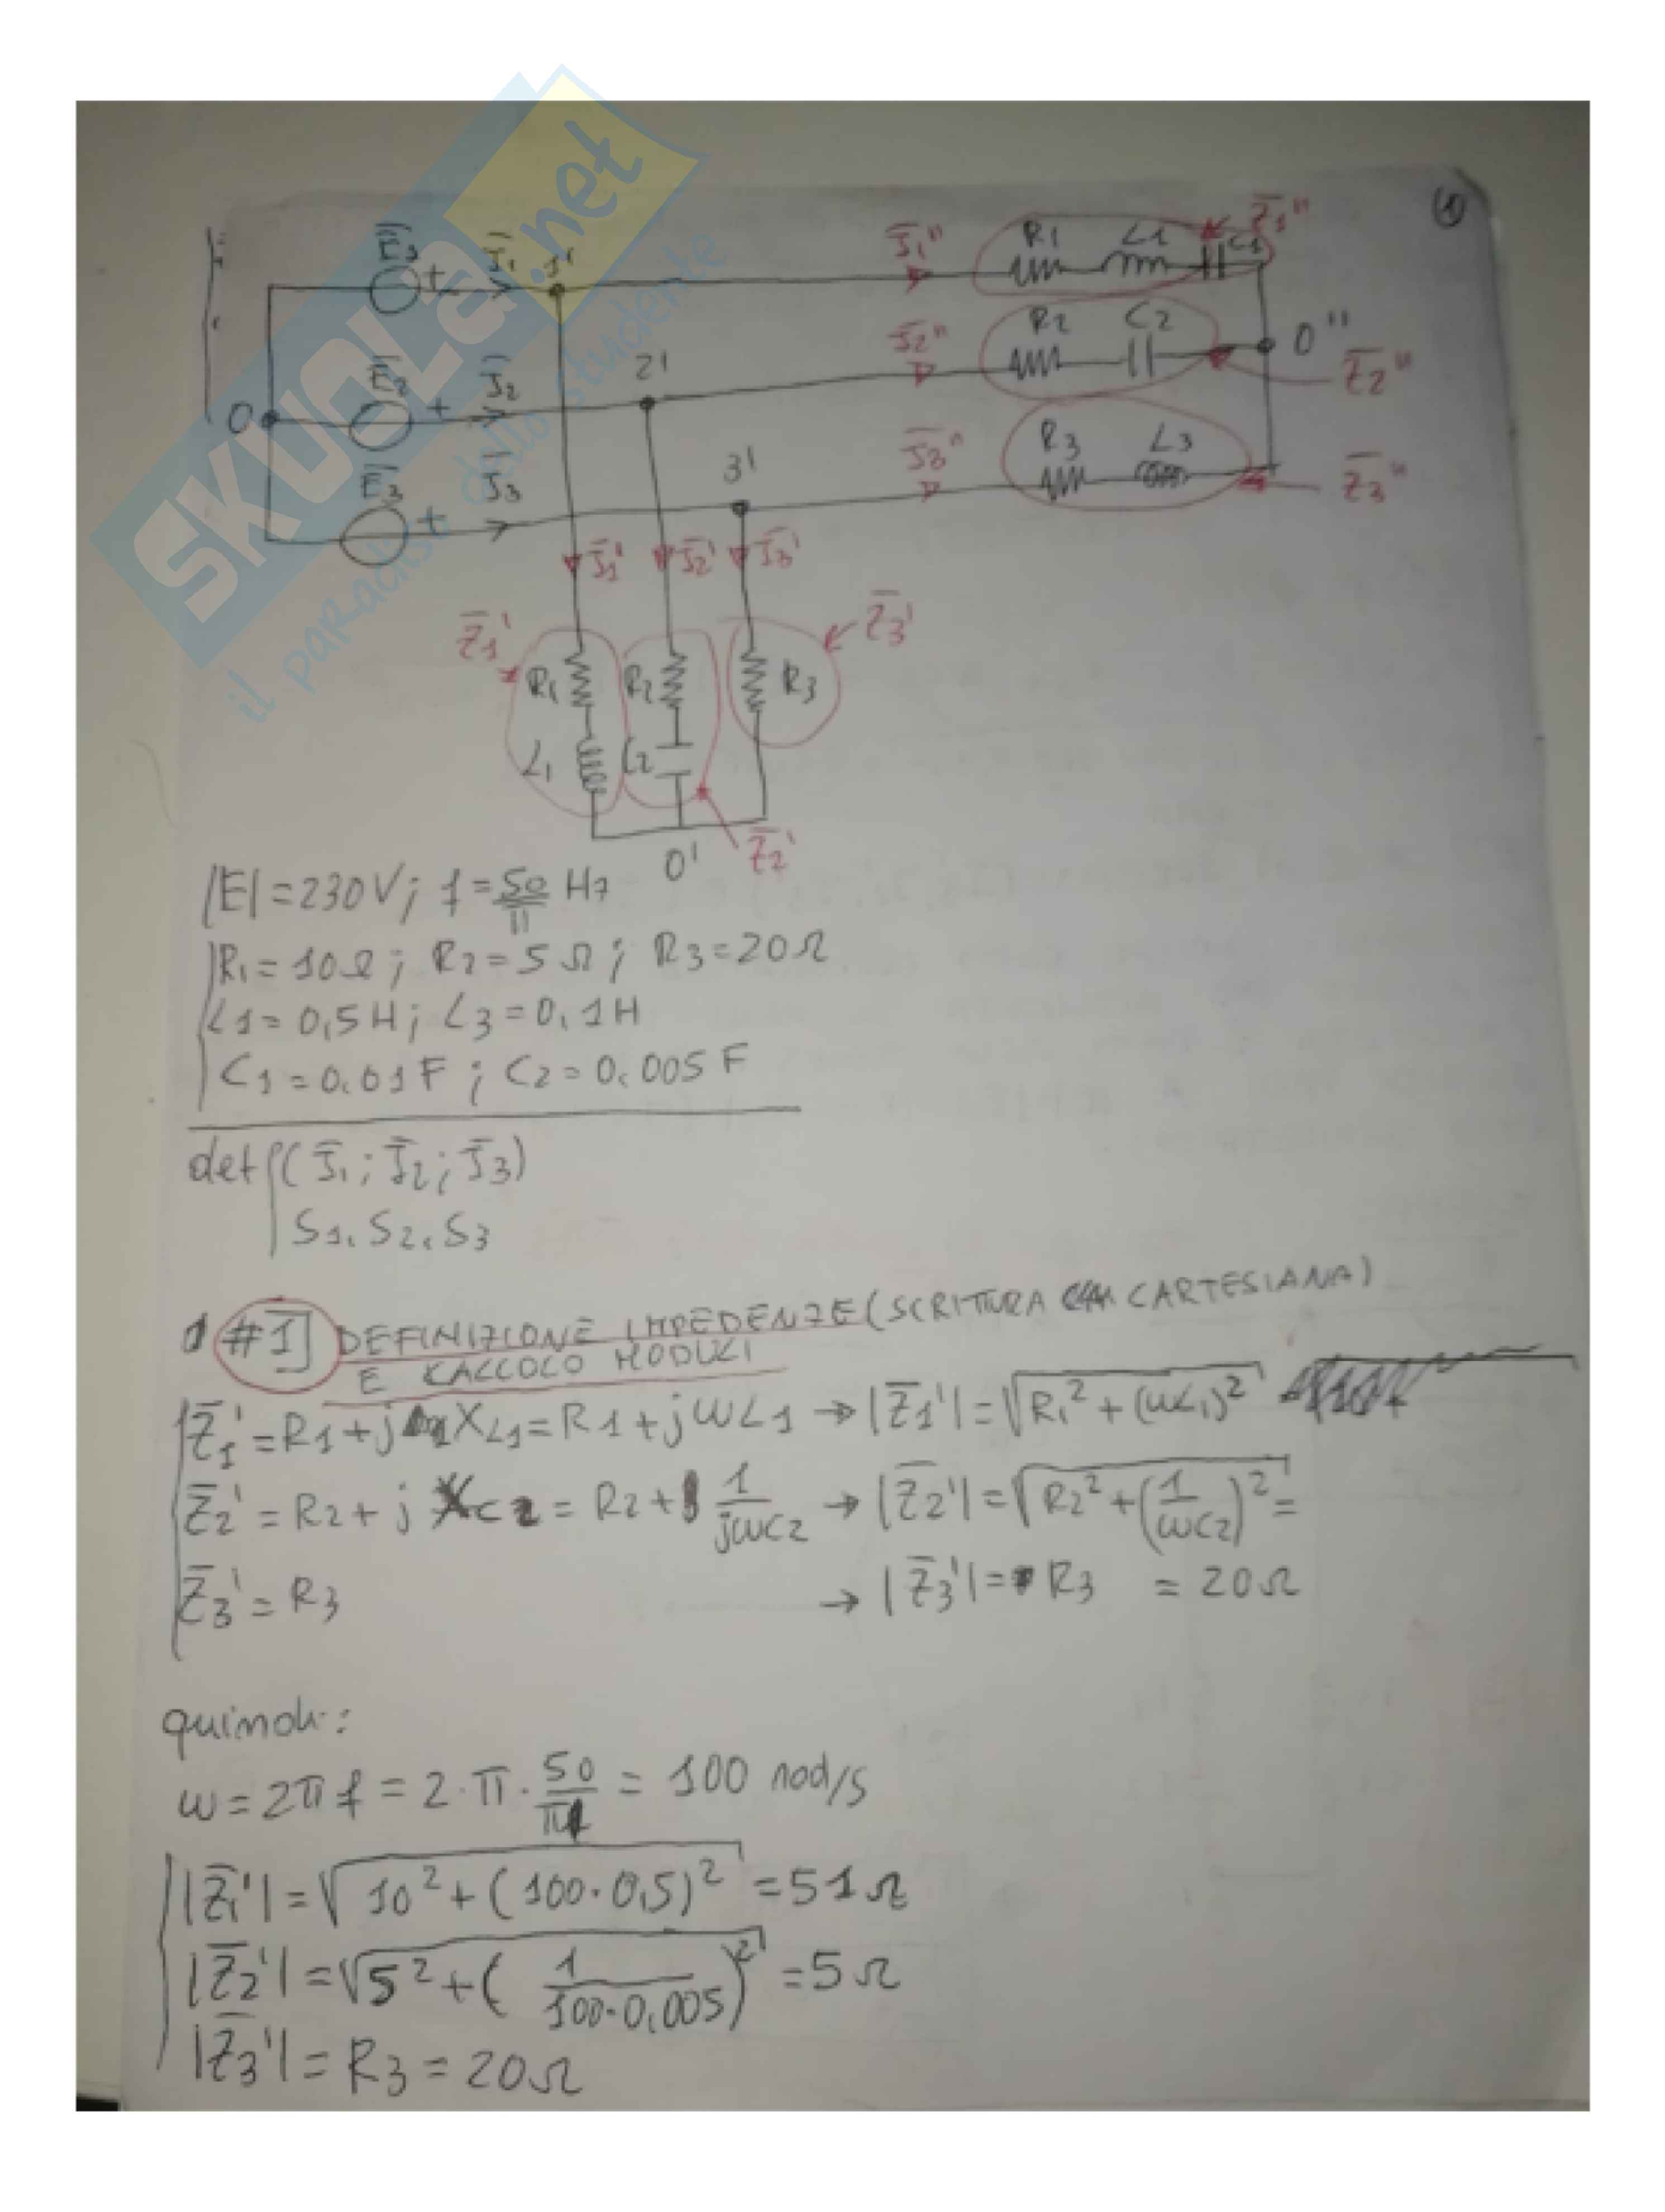 (1)
SKUOLA.net
il paradiso dello studente
E̅3 + J̅1 1' J̅1" R1 L1 C1 Z̅1"
E̅2 + J̅2 2' J̅2" R2 C2 0" Z̅2"
0
E̅3 + J̅3 3' J̅3" R3 L3 Z̅3"
J̅1' J̅2' J̅3'
Z̅1' R1 R2 R3 Z̅3'
L1 C2
0' Z̅2'
|E| = 230 V; f = 50/π Hz
R1 = 10Ω; R2 = 5 Ω; R3 = 20Ω
L1 = 0,5 H; L3 = 0,1 H
C1 = 0.01 F; C2 = 0.005 F
det (J̅1; J̅2; J̅3)
S1, S2, S3
#1] DEFINIZIONE IMPEDENZE (SCRITTURA CARTESIANA)
E CALCOLO MODULI
Z̅1' = R1 + j XL1 = R1 + jωL1 → |Z̅1'| = √(R1² + (ωL1)²)
Z̅2' = R2 + j XC2 = R2 + 1/(jωC2) → |Z̅2'| = √(R2² + (1/(ωC2))²) =
Z̅3' = R3 → |Z̅3'| = R3 = 20Ω
quindi:
ω = 2πf = 2·π· 50/π = 100 rad/s
|Z̅1'| = √(10² + (100·0,5)²) = 51Ω
|Z̅2'| = √(5² + (1/(100·0,005))²) = 5Ω
|Z̅3'| = R3 = 20Ω